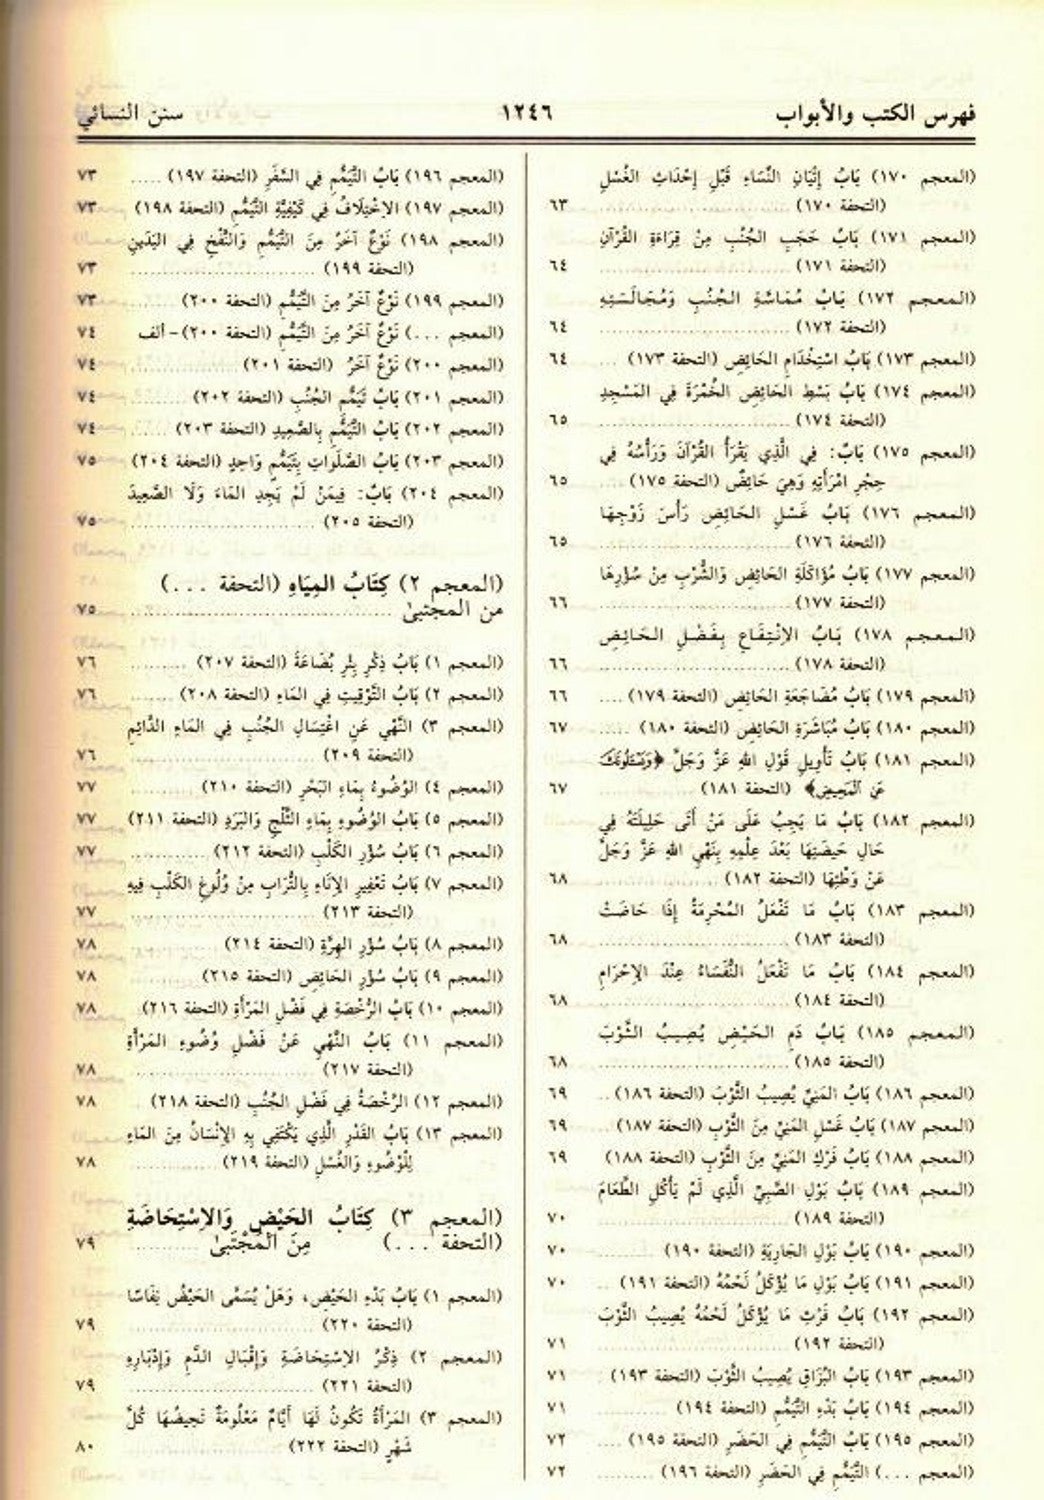 فهرس الكتب والأبواب ١٢٤٦ سنن النسائي
(المعجم ١٧٠) بَابُ إِتْيَانِ النِّسَاءِ قَبْلَ إِحْدَاثِ الغُسْلِ
(التحفة ١٧٠) ........ ٦٣
(المعجم ١٧١) بَابُ حَجَبِ الجُنُبِ مِنْ قِرَاءَةِ القُرْآنِ
(التحفة ١٧١) ........ ٦٤
(المعجم ١٧٢) بَابُ مُمَاسَّةِ الجُنُبِ وَمُجَالَسَتِهِ
(التحفة ١٧٢) ........ ٦٤
(المعجم ١٧٣) بَابُ اسْتِخْدَامِ الحَائِضِ (التحفة ١٧٣) ... ٦٤
(المعجم ١٧٤) بَابُ بَسْطِ الحَائِضِ الخُمْرَةَ فِي المَسْجِدِ
(التحفة ١٧٤) ........ ٦٥
(المعجم ١٧٥) بَابٌ: فِي الَّذِي يَقْرَأُ القُرْآنَ وَرَأْسُهُ فِي
حِجْرِ امْرَأَتِهِ وَهِيَ حَائِضٌ (التحفة ١٧٥) ... ٦٥
(المعجم ١٧٦) بَابُ غَسْلِ الحَائِضِ رَأْسَ زَوْجِهَا
(التحفة ١٧٦) ........ ٦٥
(المعجم ١٧٧) بَابُ مُؤَاكَلَةِ الحَائِضِ وَالشُّرْبِ مِنْ سُؤْرِهَا
(التحفة ١٧٧) ........ ٦٦
(المعجم ١٧٨) بَابُ الاِنْتِفَاعِ بِفَضْلِ الحَائِضِ
(التحفة ١٧٨) ........ ٦٦
(المعجم ١٧٩) بَابُ مُضَاجَعَةِ الحَائِضِ (التحفة ١٧٩) .... ٦٦
(المعجم ١٨٠) بَابُ مُبَاشَرَةِ الحَائِضِ (التحفة ١٨٠) ..... ٦٧
(المعجم ١٨١) بَابُ تَأْوِيلِ قَوْلِ اللهِ عَزَّ وَجَلَّ ﴿وَيَسْـَٔلُونَكَ
عَنِ ٱلْمَحِيضِ﴾ (التحفة ١٨١) ........ ٦٧
(المعجم ١٨٢) بَابُ مَا يَجِبُ عَلَى مَنْ أَتَى حَلِيلَتَهُ فِي
حَالِ حَيْضَتِهَا بَعْدَ عِلْمِهِ بِنَهْيِ اللهِ عَزَّ وَجَلَّ
عَنْ وَطْئِهَا (التحفة ١٨٢) ........ ٦٨
(المعجم ١٨٣) بَابُ مَا تَفْعَلُ المُحْرِمَةُ إِذَا حَاضَتْ
(التحفة ١٨٣) ........ ٦٨
(المعجم ١٨٤) بَابُ مَا تَفْعَلُ النُّفَسَاءُ عِنْدَ الإِحْرَامِ
(التحفة ١٨٤) ........ ٦٨
(المعجم ١٨٥) بَابُ دَمِ الحَيْضِ يُصِيبُ الثَّوْبَ
(التحفة ١٨٥) ........ ٦٨
(المعجم ١٨٦) بَابُ المَنِيِّ يُصِيبُ الثَّوْبَ (التحفة ١٨٦) .. ٦٩
(المعجم ١٨٧) بَابُ غَسْلِ المَنِيِّ مِنَ الثَّوْبِ (التحفة ١٨٧) .. ٦٩
(المعجم ١٨٨) بَابُ فَرْكِ المَنِيِّ مِنَ الثَّوْبِ (التحفة ١٨٨) ٦٩
(المعجم ١٨٩) بَابُ بَوْلِ الصَّبِيِّ الَّذِي لَمْ يَأْكُلِ الطَّعَامَ
(التحفة ١٨٩) ........ ٧٠
(المعجم ١٩٠) بَابُ بَوْلِ الجَارِيَةِ (التحفة ١٩٠) ........ ٧٠
(المعجم ١٩١) بَابُ بَوْلِ مَا يُؤْكَلُ لَحْمُهُ (التحفة ١٩١) .. ٧٠
(المعجم ١٩٢) بَابُ فَرْثِ مَا يُؤْكَلُ لَحْمُهُ يُصِيبُ الثَّوْبَ
(التحفة ١٩٢) ........ ٧١
(المعجم ١٩٣) بَابُ البُزَاقِ يُصِيبُ الثَّوْبَ (التحفة ١٩٣) . ٧١
(المعجم ١٩٤) بَابُ بَدْءِ التَّيَمُّمِ (التحفة ١٩٤) ........ ٧١
(المعجم ١٩٥) بَابُ التَّيَمُّمِ فِي الحَضَرِ (التحفة ١٩٥) .... ٧٢
(المعجم ...) التَّيَمُّم فِي الحَضَرِ (التحفة ١٩٦) ........ ٧٢
(المعجم ١٩٦) بَابُ التَّيَمُّمِ فِي السَّفَرِ (التحفة ١٩٧) ..... ٧٣
(المعجم ١٩٧) الاِخْتِلَافُ فِي كَيْفِيَّةِ التَّيَمُّمِ (التحفة ١٩٨) ٧٣
(المعجم ١٩٨) نَوْعٌ آخَرُ مِنَ التَّيَمُّمِ وَالنَّفْخِ فِي اليَدَيْنِ
(التحفة ١٩٩) ........ ٧٣
(المعجم ١٩٩) نَوْعٌ آخَرُ مِنَ التَّيَمُّمِ (التحفة ٢٠٠) ...... ٧٣
(المعجم ...) نَوْعٌ آخَرُ مِنَ التَّيَمُّمِ (التحفة ٢٠٠)-ألف ٧٤
(المعجم ٢٠٠) نَوْعٌ آخَرُ (التحفة ٢٠١) ........ ٧٤
(المعجم ٢٠١) بَابُ تَيَمُّمِ الجُنُبِ (التحفة ٢٠٢) ........ ٧٤
(المعجم ٢٠٢) بَابُ التَّيَمُّمِ بِالصَّعِيدِ (التحفة ٢٠٣) ..... ٧٤
(المعجم ٢٠٣) بَابُ الصَّلَوَاتِ بِتَيَمُّمٍ وَاحِدٍ (التحفة ٢٠٤) ٧٥
(المعجم ٢٠٤) بَابٌ: فِيمَنْ لَمْ يَجِدِ المَاءَ وَلَا الصَّعِيدَ
(التحفة ٢٠٥) ........ ٧٥
(المعجم ٢) كِتَابُ المِيَاهِ (التحفة ...)
من المجتبىٰ ........ ٧٥
(المعجم ١) بَابُ ذِكْرِ بِئْرِ بُضَاعَةَ (التحفة ٢٠٧) ........ ٧٦
(المعجم ٢) بَابُ التَّوْقِيتِ فِي المَاءِ (التحفة ٢٠٨) ...... ٧٦
(المعجم ٣) النَّهْي عَنِ اغْتِسَالِ الجُنُبِ فِي المَاءِ الدَّائِمِ
(التحفة ٢٠٩) ........ ٧٦
(المعجم ٤) الوُضُوءُ بِمَاءِ البَحْرِ (التحفة ٢١٠) ........ ٧٧
(المعجم ٥) بَابُ الوُضُوءِ بِمَاءِ الثَّلْجِ وَالبَرَدِ (التحفة ٢١١) ٧٧
(المعجم ٦) بَابُ سُؤْرِ الكَلْبِ (التحفة ٢١٢) ........ ٧٧
(المعجم ٧) بَابُ تَعْفِيرِ الإِنَاءِ بِالتُّرَابِ مِنْ وُلُوغِ الكَلْبِ فِيهِ
(التحفة ٢١٣) ........ ٧٧
(المعجم ٨) بَابُ سُؤْرِ الهِرَّةِ (التحفة ٢١٤) ........ ٧٨
(المعجم ٩) بَابُ سُؤْرِ الحَائِضِ (التحفة ٢١٥) ........ ٧٨
(المعجم ١٠) بَابُ الرُّخْصَةِ فِي فَضْلِ المَرْأَةِ (التحفة ٢١٦) ٧٨
(المعجم ١١) بَابُ النَّهْيِ عَنْ فَضْلِ وُضُوءِ المَرْأَةِ
(التحفة ٢١٧) ........ ٧٨
(المعجم ١٢) الرُّخْصَةُ فِي فَضْلِ الجُنُبِ (التحفة ٢١٨) . ٧٨
(المعجم ١٣) بَابُ القَدْرِ الَّذِي يَكْتَفِي بِهِ الإِنْسَانُ مِنَ المَاءِ
لِلْوُضُوءِ وَالغُسْلِ (التحفة ٢١٩) ........ ٧٨
(المعجم ٣) كِتَابُ الحَيْضِ وَالاِسْتِحَاضَةِ
(التحفة ...) مِنَ المُجْتَبىٰ ........ ٧٩
(المعجم ١) بَابُ بَدْءِ الحَيْضِ، وَهَلْ يُسَمَّى الحَيْضُ نِفَاسًا
(التحفة ٢٢٠) ........ ٧٩
(المعجم ٢) ذِكْرُ الاِسْتِحَاضَةِ وَإِقْبَالِ الدَّمِ وَإِدْبَارِهِ
(التحفة ٢٢١) ........ ٧٩
(المعجم ٣) المَرْأَةُ تَكُونُ لَهَا أَيَّامٌ مَعْلُومَةٌ تَحِيضُهَا كُلَّ
شَهْرٍ (التحفة ٢٢٢) ........ ٨٠